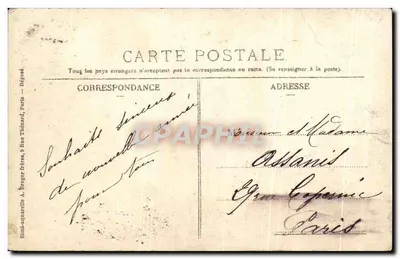 CARTE POSTALE
Tous les pays étrangers n'acceptent pas la correspondance au recto. (Se renseigner à la poste).
CORRESPONDANCE
ADRESSE
Souhaits sincères
de nouvelle année
pour
Monsieur et Madame
Assanis
29 rue Copernic
Paris
Simi-aquarelle A. Breger frères, 9 Rue Thénard, Paris — Déposé.
CPAPHIL